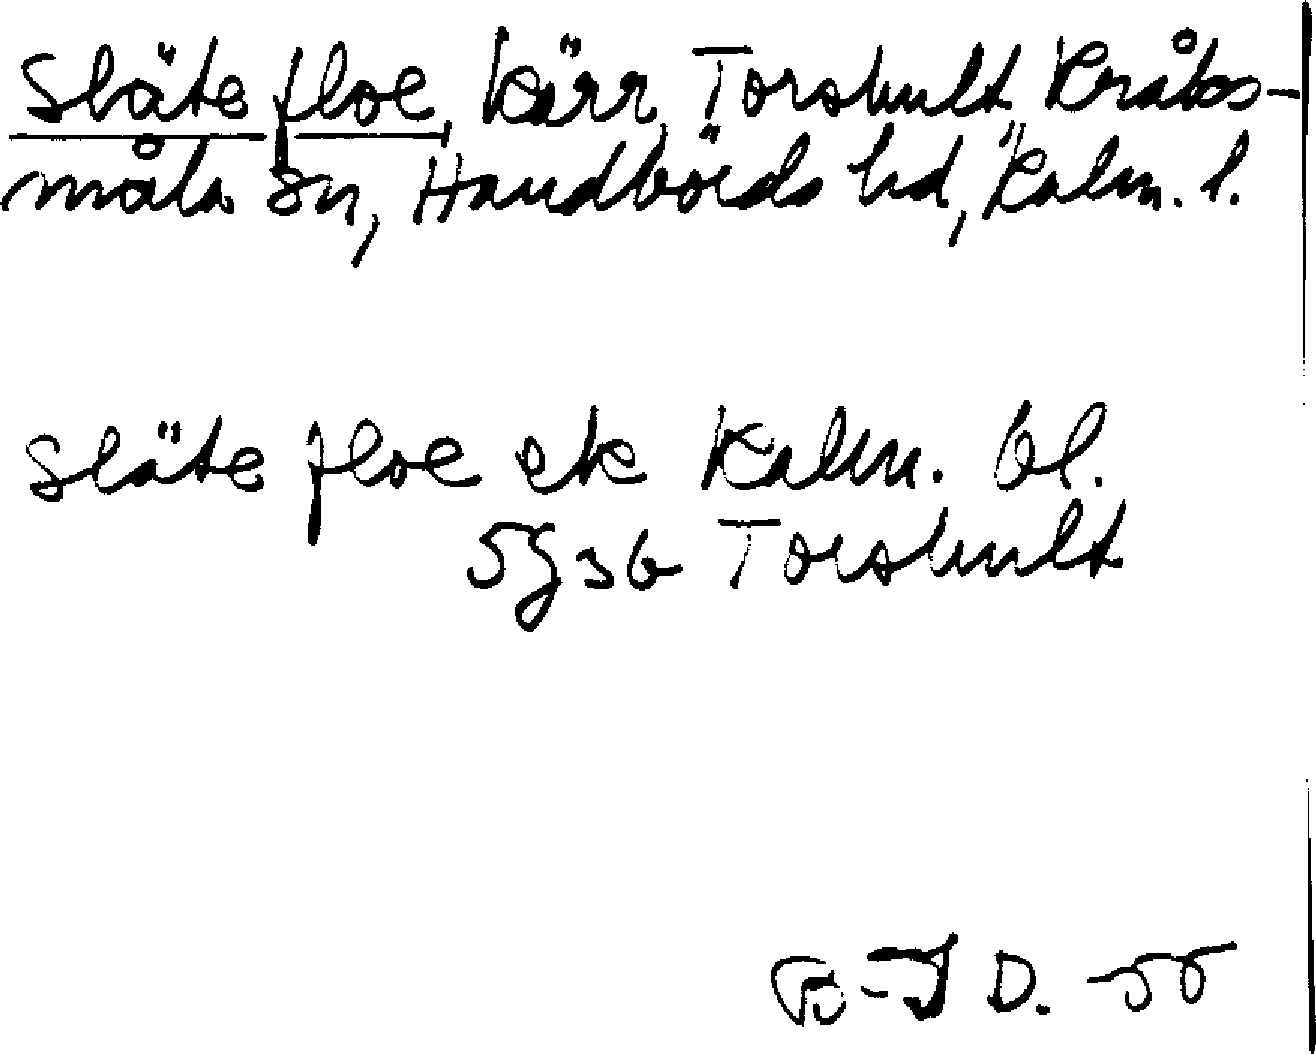 Släte floe, kärr, Torshult, Kråks-
måla sn, Handbörds hd, Kalm. l.
släte floe ek Kalm. bl.
5g3b Torshult
B-I D. -55